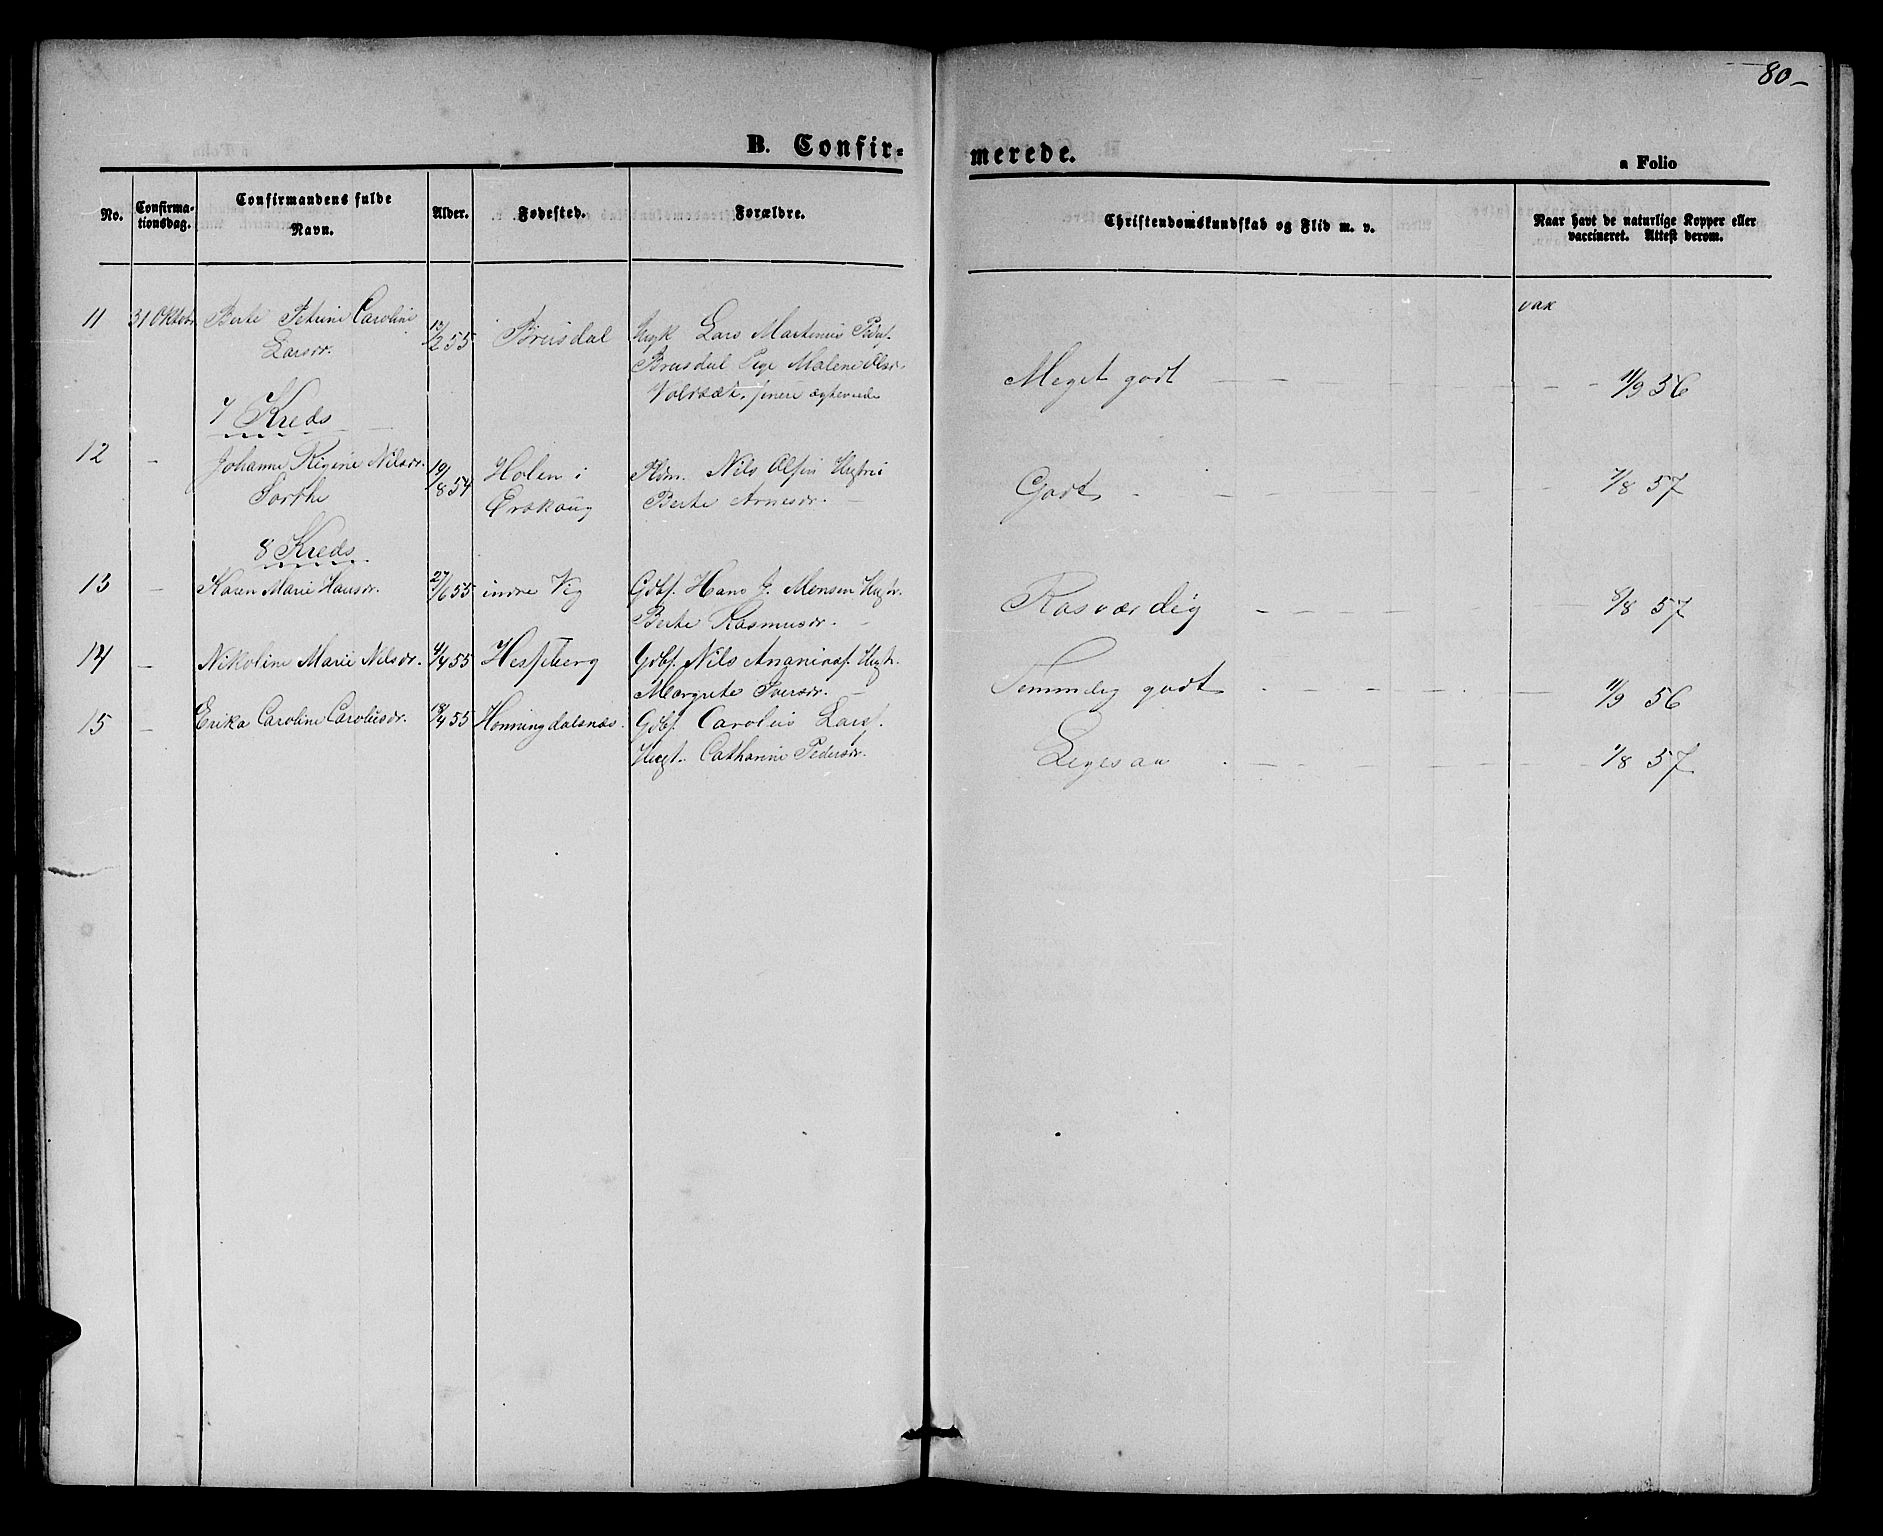 80-
B. Confir-
merede.
a Folio
No.
Confirma-
tionsdag.
Confirmandens fulde
Navn.
Alder.
Fødested.
Forældre.
Christendomskundskab og Flid m. v.
Naar havt de naturlige Kopper eller
vaccineret. Attest derom.
vak
11 31 Oktobr Berte Petrine Caroline
Larsdr.
12/2 55 Brusdal
Ungk Lars Martinus Pedrs.
Brusdal Pige Malene Olsdr.
Valdsæt, senere ægteviede
Meget godt - - - - 11/9 56
7 Kreds
12 - Johanne Regine Nilsdr.
Sorthe
19/8 54 Holen i
Ørskoug
Pldm. Nils Olsen Hustrue
Berte Arnesdr. -
Godt - - - - 7/8 57
8 Kreds
13 - Karen Marie Hansdr. 27/6 55 indre Vig Gdbf. Hans J. Monsen Hugtr.
Berte Rasmusdr. -
Rosværdig - - - - 8/8 57
14 - Nikoline Marie Nilsdr. 4/4 55 Hessberg Gdbf. Nils Ananiasf. Hugtr.
Margrete Iversdr. -
Temmelig godt - - - - 11/9 56
15 - Erika Caroline Carolusdr. 18/4 55 Honningdalsnæs. Gdbf. Carolus Larsf.
Hugt. Catharine Pedersdr.
Ligesaa - - - - 1/8 57